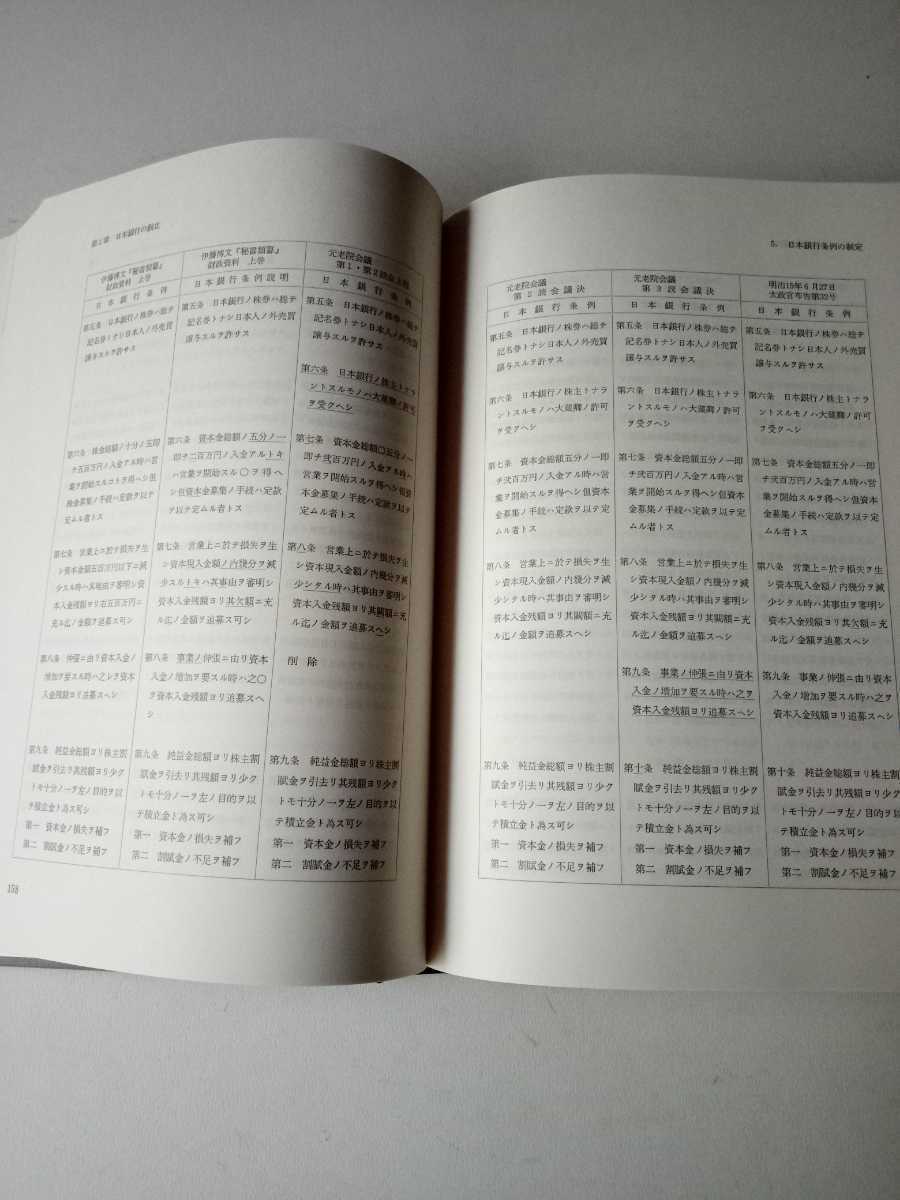 第2章 日本銀行の創立
伊藤博文『秘書類纂』
財政資料 上巻
日本銀行条例
第五条 日本銀行ノ株券ハ総テ
記名券トナシ日本人ノ外売買
譲与スルヲ許サス
第六条 株金総額ノ十分ノ五即
チ五百万円ノ入金アル時ハ営
業ヲ開始スルコトヲ得ヘシ但
株金募集ノ手続ハ定款ヲ以テ
定ムル者トス
第七条 営業上ニ於テ損失ヲ生
シ資本金額五百万円以下ニ減
少スル時ハ其事由ヲ審明シ資
本入金残額ヨリ右五百万円ニ
充ル迄ノ金額ヲ追募ス可シ
第八条 伸張ニ由リ資本入金ノ
増加ヲ要スル時ハ之レヲ資本
入金残額ヨリ追募スヘシ
第九条 純益金総額ヨリ株主割
賦金ヲ引去リ其残額ヨリ少ク
トモ十分ノ一ヲ左ノ目的ヲ以
テ積立金ト為ス可シ
第一 資本金ノ損失ヲ補フ
第二 割賦金ノ不足ヲ補フ
伊藤博文『秘書類纂』
財政資料 上巻
日本銀行条例説明
第五条 日本銀行ノ株券ハ総テ
記名券トナシ日本人ノ外売買
譲与スルヲ許サス
第六条 資本金総額ノ五分ノ一
即チ二百万円ノ入金アルトキ
ハ営業ヲ開始スル〇ヲ得ヘ
シ但資本金募集ノ手続ハ定款
ヲ以テ定ムル者トス
第七条 営業上ニ於テ損失ヲ生
シ資本現入金額ノ内幾分ヲ減
少スルトキハ其事由ヲ審明シ
資本入金残額ヨリ其欠額ニ充
ル迄ノ金額ヲ追募ス可シ
第八条 事業ノ伸張ニ由リ資本
入金ノ増加ヲ要スル時ハ之〇
ヲ資本入金残額ヨリ追募スヘ
シ
第九条 純益金総額ヨリ株主割
賦金ヲ引去リ其残額ヨリ少ク
トモ十分ノ一ヲ左ノ目的ヲ以
テ積立金ト為ス可シ
第一 資本金ノ損失ヲ補フ
第二 割賦金ノ不足ヲ補フ
元老院会議
第1・第2読会上程
日本銀行条例
第五条 日本銀行ノ株券ハ総テ
記名券トナシ日本人ノ外売買
譲与スルヲ許サス
第六条 日本銀行ノ株主トナラ
ントスルモノハ大蔵卿ノ許可
ヲ受クヘシ
第七条 資本金総額〇五分ノ一
即チ弐百万円ノ入金アル時ハ
営業ヲ開始スルヲ得ヘシ但資
本金募集ノ手続ハ定款ヲ以テ
定ムル者トス
第八条 営業上ニ於テ損失ヲ生
シ資本現入金額ノ内幾分ヲ減
少シタル時ハ其事由ヲ審明シ
資本入金残額ヨリ其闕額ニ充
ル迄ノ金額ヲ追募スヘシ
削除
第九条 純益金総額ヨリ株主割
賦金ヲ引去リ其残額ヨリ少ク
トモ十分ノ一ヲ左ノ目的ヲ以
テ積立金ト為ス可シ
第一 資本金ノ損失ヲ補フ
第二 割賦金ノ不足ヲ補フ
158
5. 日本銀行条例の制定
元老院会議
第2読会議決
日本銀行条例
第五条 日本銀行ノ株券ハ総テ
記名券トナシ日本人ノ外売買
譲与スルヲ許サス
第六条 日本銀行ノ株主トナラ
ントスルモノハ大蔵卿ノ許可
ヲ受クヘシ
第七条 資本金総額五分ノ一即
チ弐百万円ノ入金アル時ハ営
業ヲ開始スルヲ得ヘシ但資本
金募集ノ手続ハ定款ヲ以テ定
ムル者トス
第八条 営業上ニ於テ損失ヲ生
シ資本現入金額ノ内幾分ヲ減
少シタル時ハ其事由ヲ審明シ
資本入金残額ヨリ其闕額ニ充
ル迄ノ金額ヲ追募スヘシ
第九条 純益金総額ヨリ株主割
賦金ヲ引去リ其残額ヨリ少ク
トモ十分ノ一ヲ左ノ目的ヲ以
テ積立金ト為ス可シ
第一 資本金ノ損失ヲ補フ
第二 割賦金ノ不足ヲ補フ
元老院会議
第3読会議決
日本銀行条例
第五条 日本銀行ノ株券ハ総テ
記名券トナシ日本人ノ外売買
譲与スルヲ許サス
第六条 日本銀行ノ株主トナラ
ントスルモノハ大蔵卿ノ許可
ヲ受クヘシ
第七条 資本金総額五分ノ一即
チ弐百万円ノ入金アル時ハ営
業ヲ開始スルヲ得ヘシ但資本
金募集ノ手続ハ定款ヲ以テ定
ムル者トス
第八条 営業上ニ於テ損失ヲ生
シ資本現入金額ノ内幾分ヲ減
少シタル時ハ其事由ヲ審明シ
資本入金残額ヨリ其闕額ニ充
ル迄ノ金額ヲ追募スヘシ
第九条 事業ノ伸張ニ由リ資本
入金ノ増加ヲ要スル時ハ之ヲ
資本入金残額ヨリ追募スヘシ
第十条 純益金総額ヨリ株主割
賦金ヲ引去リ其残額ヨリ少ク
トモ十分ノ一ヲ左ノ目的ヲ以
テ積立金ト為ス可シ
第一 資本金ノ損失ヲ補フ
第二 割賦金ノ不足ヲ補フ
明治15年6月27日
太政官布告第32号
日本銀行条例
第五条 日本銀行ノ株券ハ総テ
記名券トナシ日本人ノ外売買
譲与スルヲ許サス
第六条 日本銀行ノ株主トナラ
ントスルモノハ大蔵卿ノ許可
ヲ受クヘシ
第七条 資本金総額五分ノ一即
チ弐百万円ノ入金アル時ハ営
業ヲ開始スルヲ得ヘシ但資本
金募集ノ手続ハ定款ヲ以テ定
ムル者トス
第八条 営業上ニ於テ損失ヲ生
シ資本現入金額ノ内幾分ヲ減
少シタル時ハ其事由ヲ審明シ
資本入金残額ヨリ其欠額ニ充
ル迄ノ金額ヲ追募スヘシ
第九条 事業ノ伸張ニ由リ資本
入金ノ増加ヲ要スル時ハ之ヲ
資本入金残額ヨリ追募スヘシ
第十条 純益金総額ヨリ株主割
賦金ヲ引去リ其残額ヨリ少ク
トモ十分ノ一ヲ左ノ目的ヲ以
テ積立金ト為ス可シ
第一 資本金ノ損失ヲ補フ
第二 割賦金ノ不足ヲ補フ